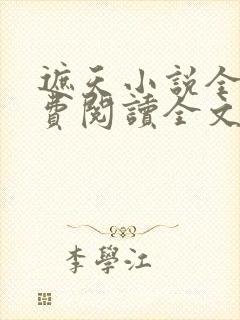 遮天小説全
費閱讀全文
李學江